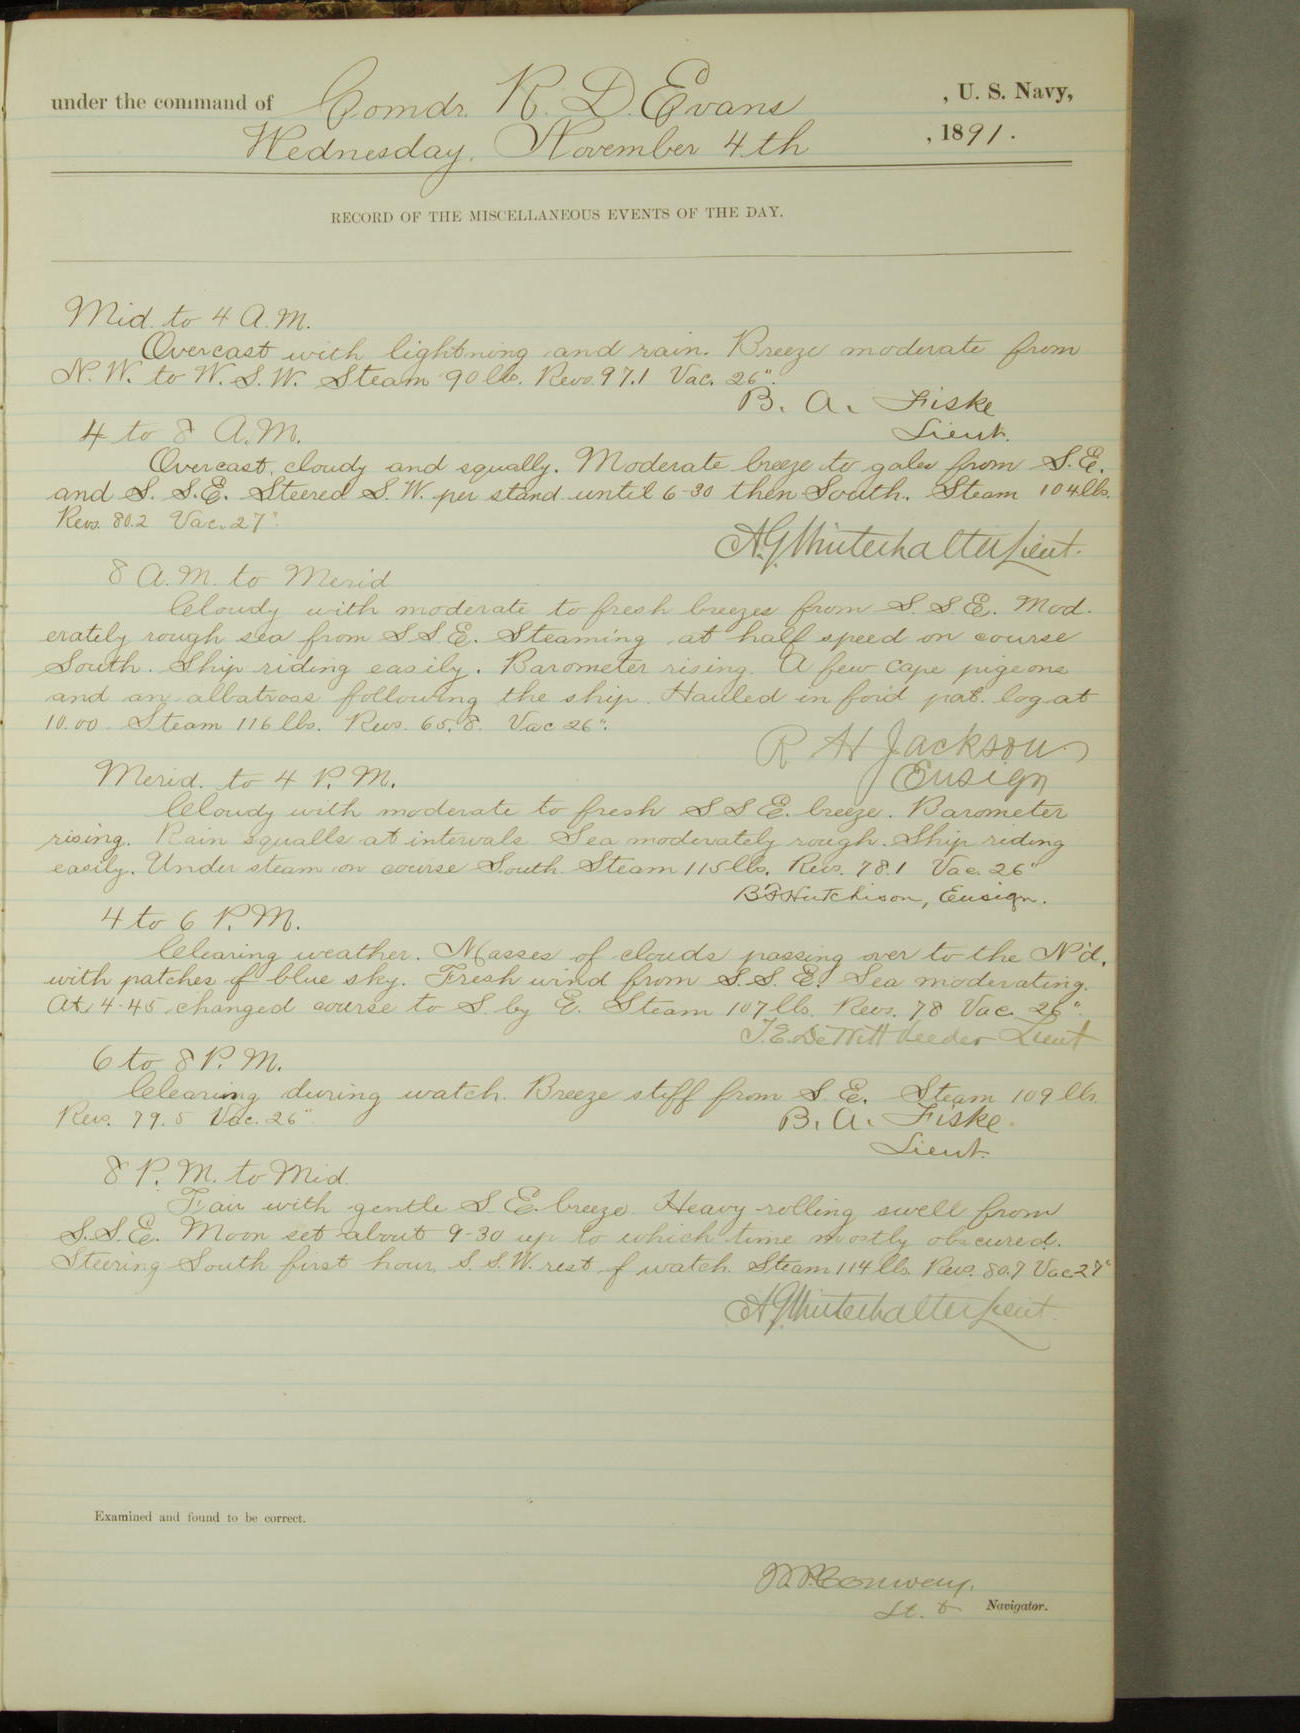 under the command of Comdr. R. D. Evans, U. S. Navy,
Wednesday, November 4th, 1891.
RECORD OF THE MISCELLANEOUS EVENTS OF THE DAY.
Mid. to 4 A.M.
Overcast with lightning and rain. Breeze moderate from
N.W. to W.S.W. Steam 90 lbs. Revs. 97.1 Vac. 26".
B. A. Fiske
Lieut.
4 to 8 A.M.
Overcast, cloudy and squally. Moderate breeze to gales from S.E.
and S. S.E. Steered S.W. per stand until 6-30 then South. Steam 104 lbs.
Revs. 80.2 Vac. 27".
A.G. Winterhalter Lieut.
8 A.M. to Merid
Cloudy with moderate to fresh breezes from S. S.E. Mod-
erately rough sea from S.S.E. Steaming at half speed on course
South. Ship riding easily. Barometer rising. A few cape pigeons
and an albatross following the ship. Hauled in for'd pat. log at
10.00. Steam 116 lbs. Revs. 65.8. Vac 26".
R H Jackson
Ensign
Merid. to 4 P.M.
Cloudy with moderate to fresh S S E. breeze. Barometer
rising. Rain squalls at intervals. Sea moderately rough. Ship riding
easily. Under steam on course South. Steam 115 lbs. Revs. 78.1 Vac. 26"
B.F. Hutchison, Ensign.
4 to 6 P.M.
Clearing weather. Masses of clouds passing over to the N'd,
with patches of blue sky. Fresh wind from S.S.E. Sea moderating.
At 4-45 changed course to S. by E. Steam 107 lbs. Revs. 78 Vac. 26".
T.E. DeWitt Veeder Lieut
6 to 8 P.M.
Clearing during watch. Breeze stiff from S.E. Steam 109 lbs.
Revs. 79.5 Vac. 26"
B. A. Fiske.
Lieut.
8 P.M. to Mid.
Fair with gentle S.E. breeze. Heavy rolling swell from
S.S.E. Moon set about 9-30 up to which time mostly obscured.
Steering South first hour, S.S.W. rest of watch. Steam 114 lbs. Revs. 80.7 Vac 27"
A.G. Winterhalter Lieut.
Examined and found to be correct.
Conway,
Lt. & Navigator.